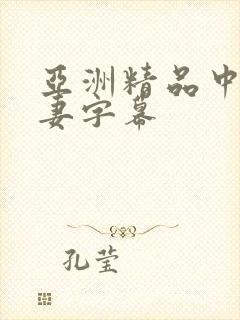 亞洲精品中
妻字幕
孔莹